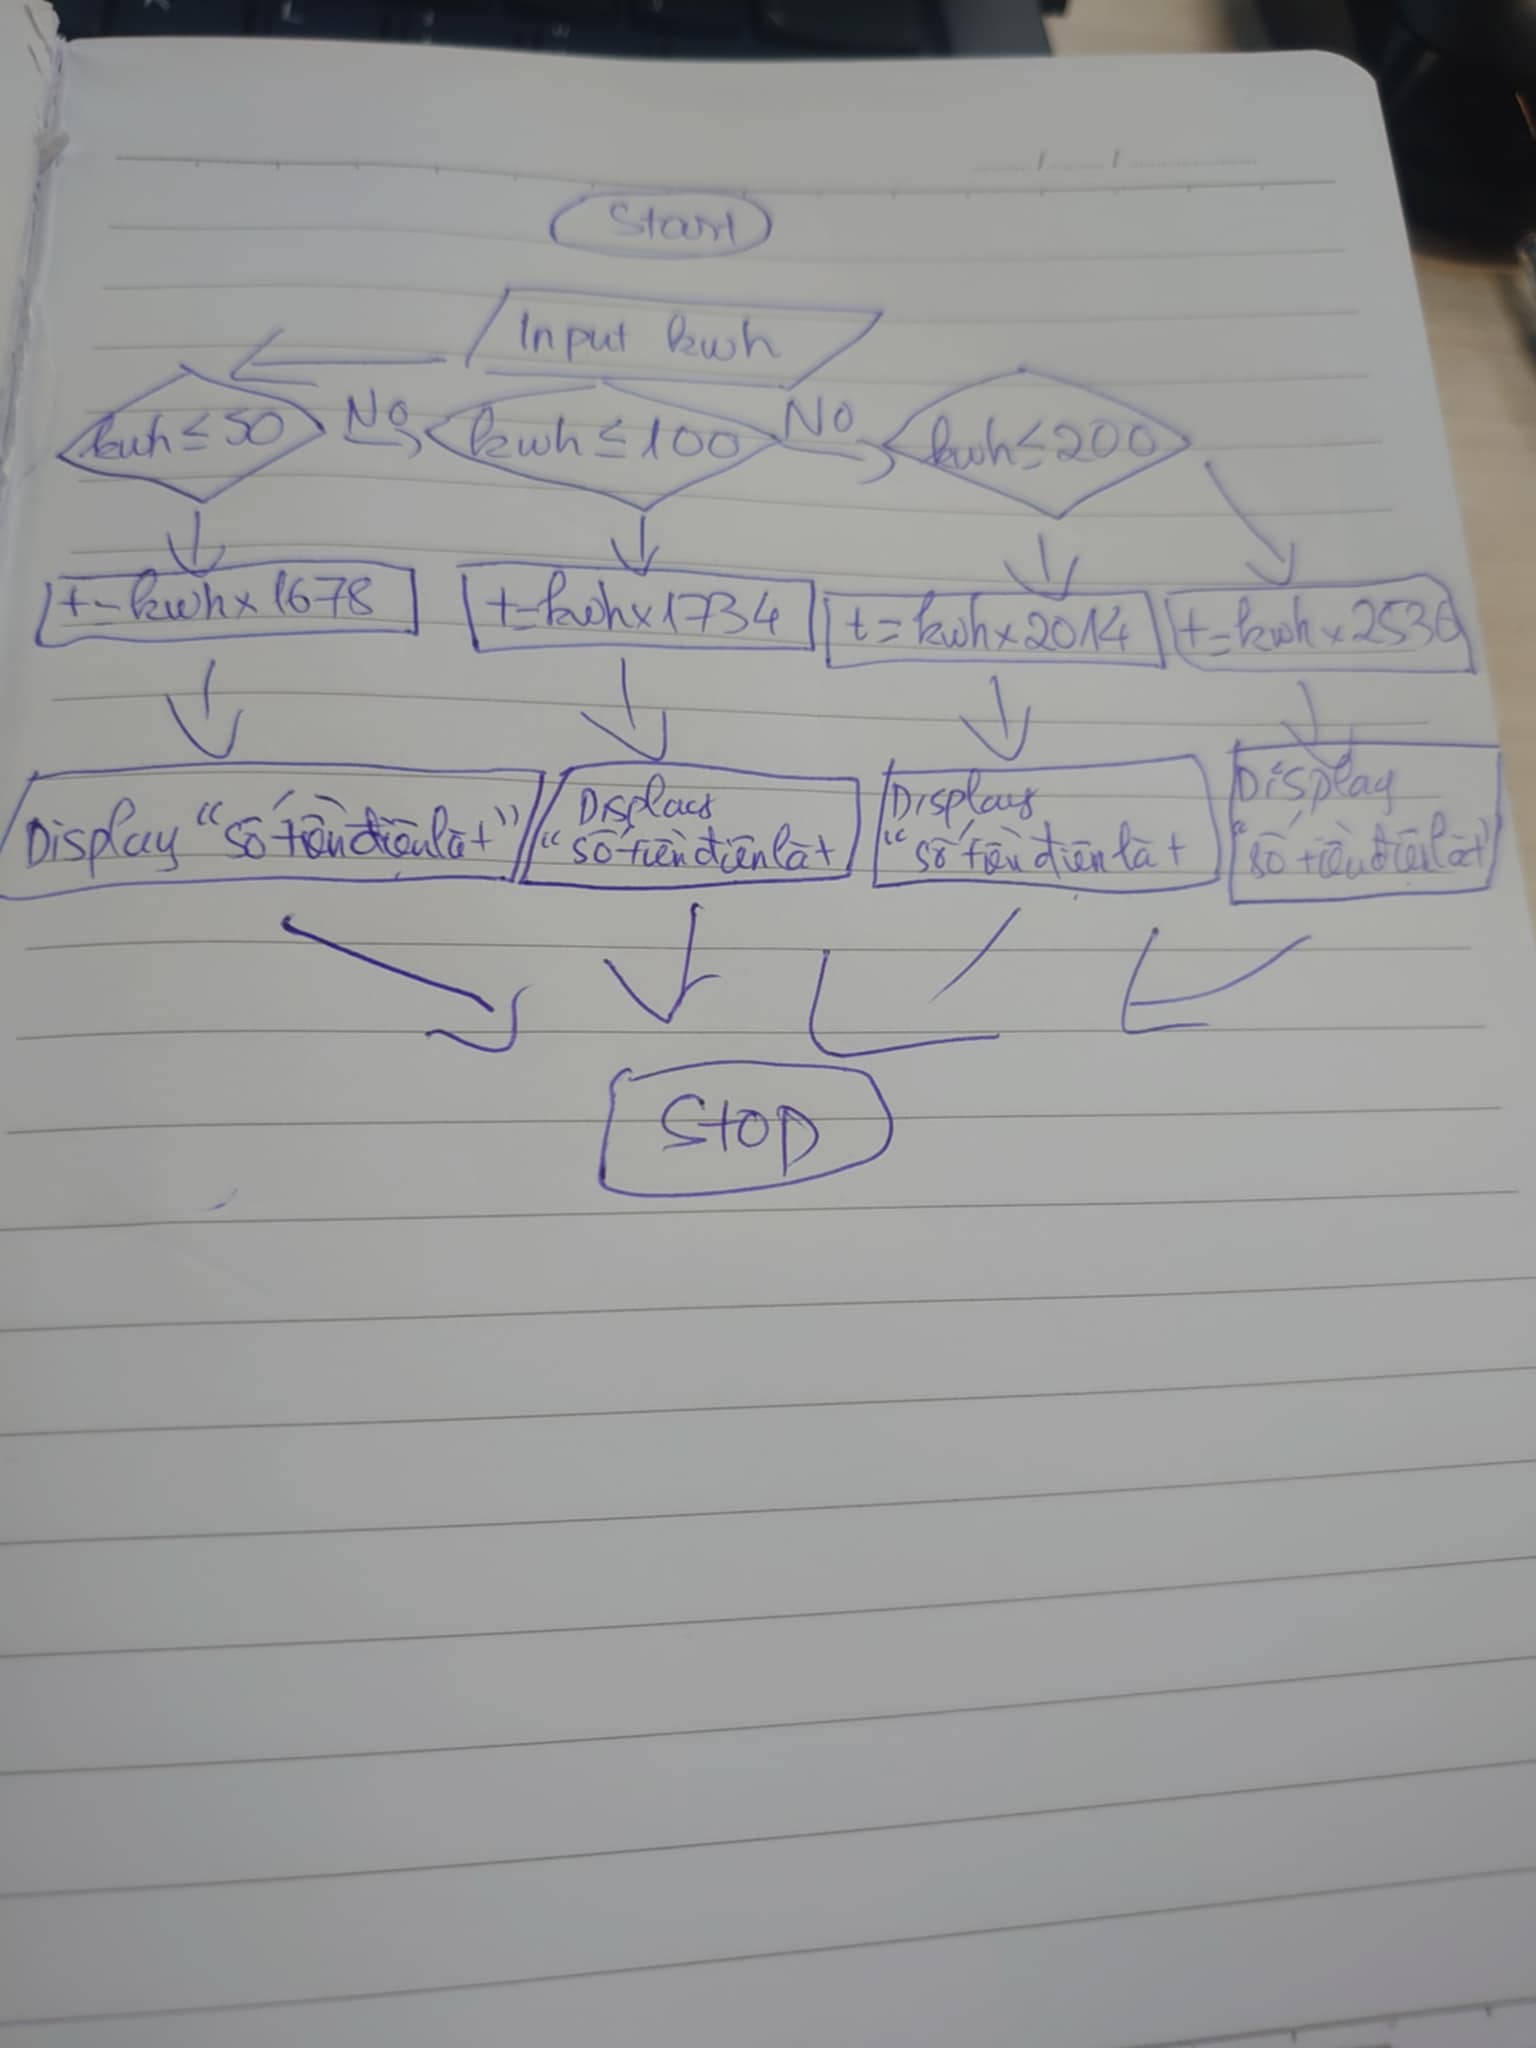 Start
Input kwh
kwh ≤ 50
No
kwh ≤ 100
No
kwh ≤ 200
t = kwh x 1678
t = kwh x 1734
t = kwh x 2014
t = kwh x 2536
Display "số tiền điện là t"
Display
"số tiền điện là t
Display
"số tiền điện là t
Display
"số tiền điện là t"
Stop